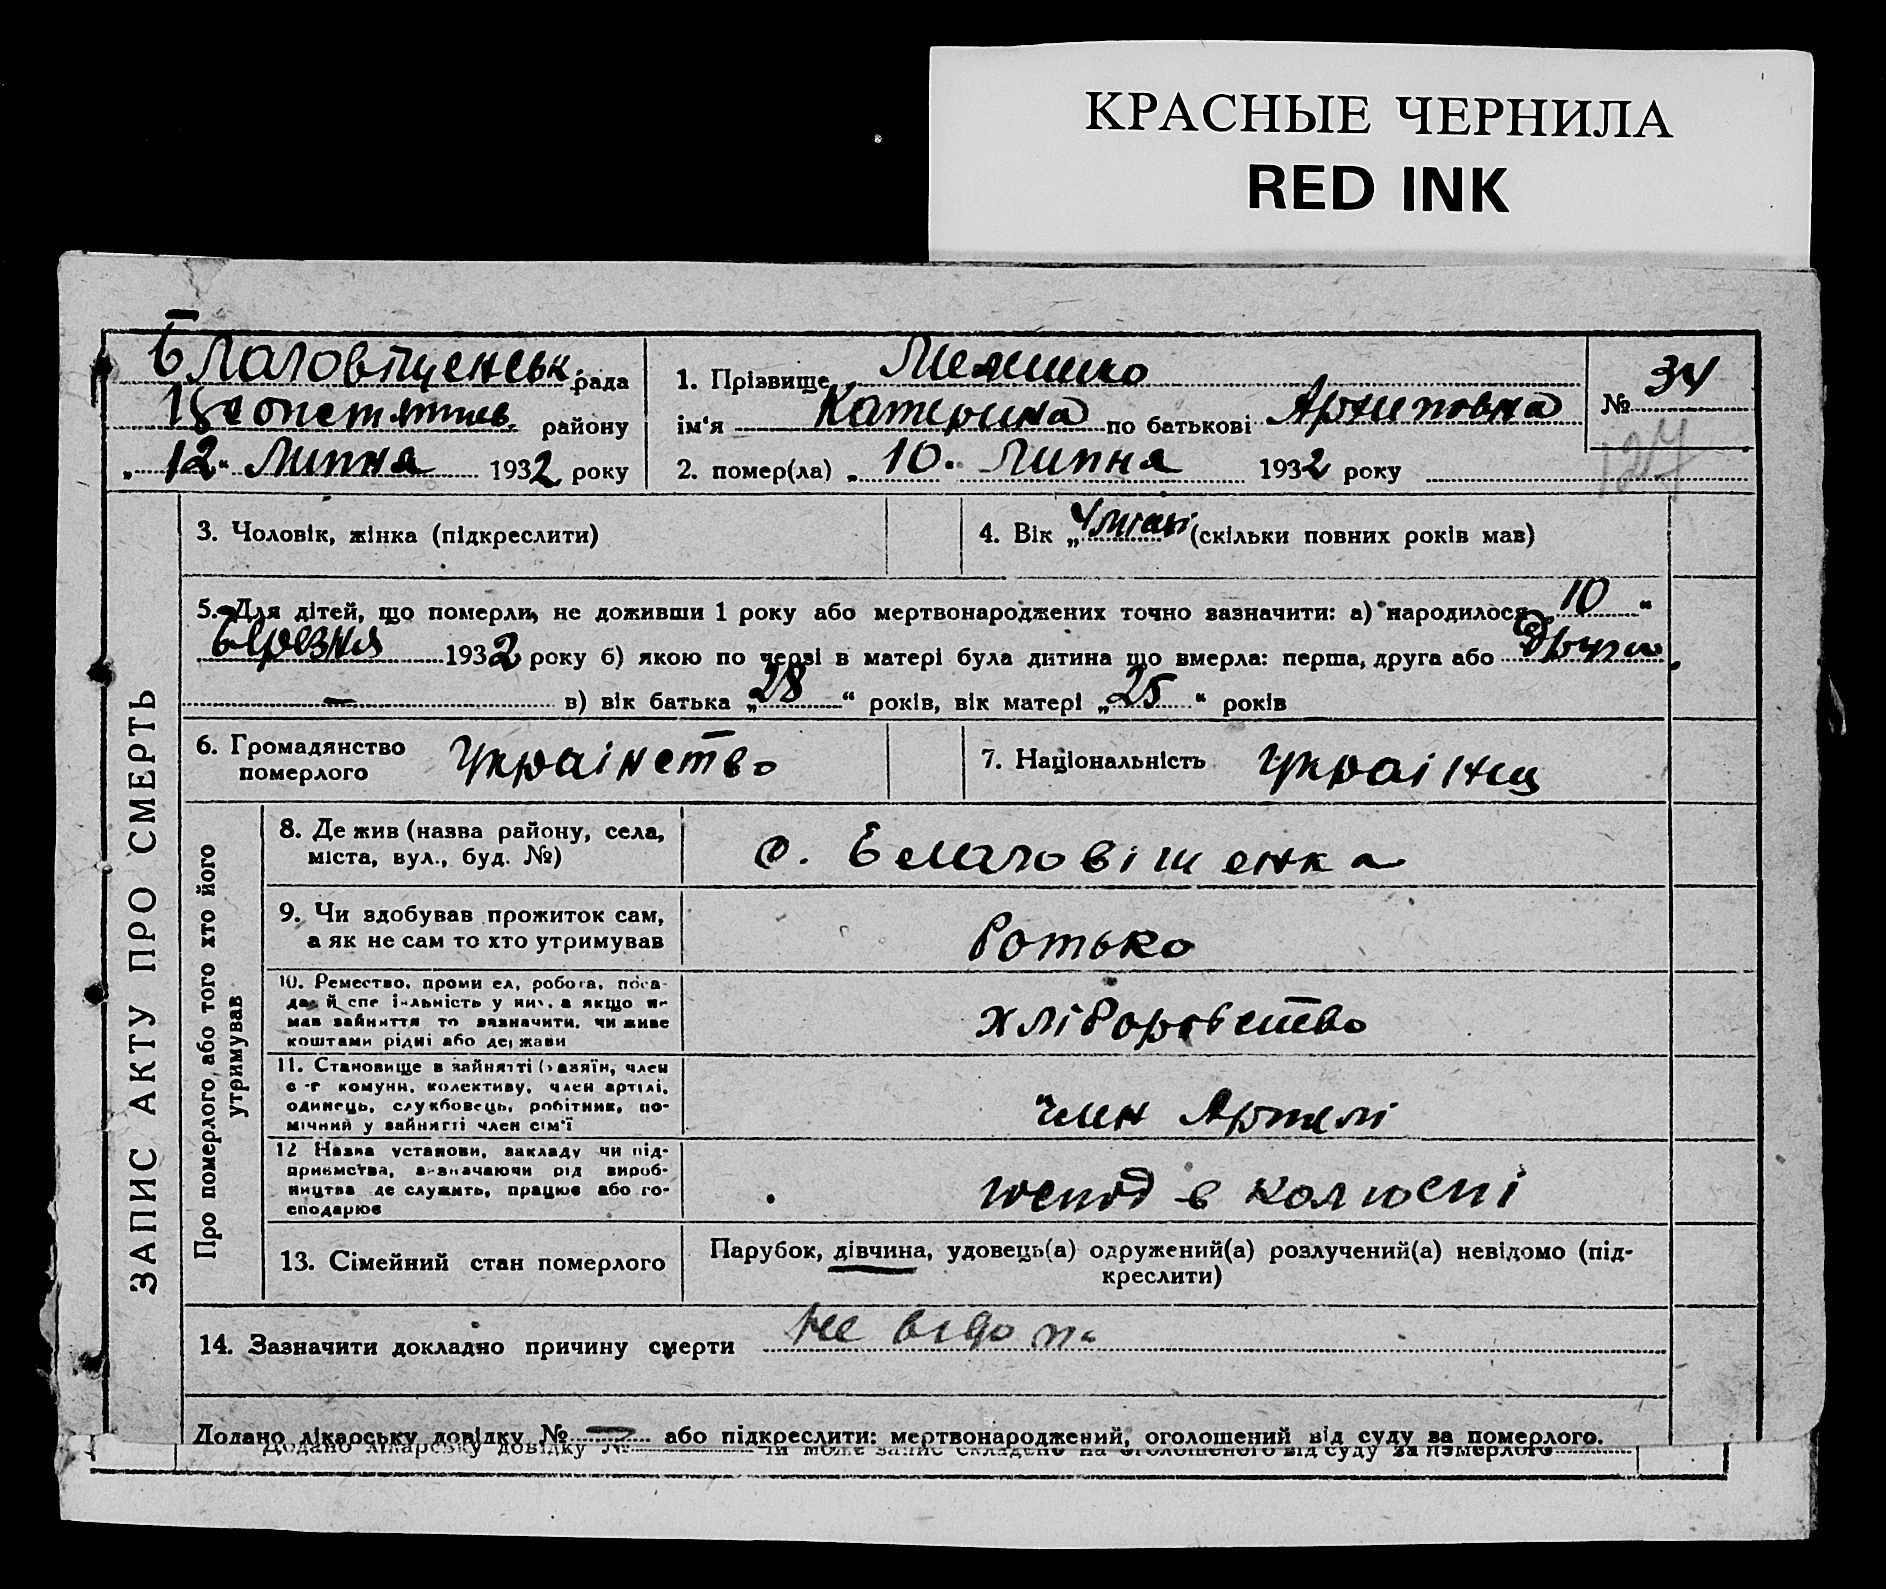 КРАСНЫЕ ЧЕРНИЛА
RED INK
Благовіщенськ. рада
району
„12“ Липня 1932 року
1. Прізвище
ім'я Катерина по батькові Архиповна
2. помер(ла) „10. Липня 1932 року
№ 34
127
ЗАПИС АКТУ ПРО СМЕРТЬ
3. Чоловік, жінка (підкреслити)
4. Вік „ (скільки повних років мав)
5. Для дітей, що померли, не доживши 1 року або мертвонароджених точно зазначити: а) народилося 10 “
Березня 1932 року б) якою по черзі в матері була дитина що вмерла: перша, друга або
— в) вік батька „28“ років, вік матері „25“ років
6. Громадянство
померлого
Украінство
7. Національність Украінц
Про померлого, або того хто його
утримував
8. Де жив (назва району, села,
міста, вул., буд. №)
с. Благовішенка
9. Чи здобував прожиток сам,
а як не сам то хто утримував
батько
10. Ремество, проми ел, робота, поса-
да й спе і льність у ни , а якщо не
мав зайняття то зазначити, чи живе
коштами рідні або держави
хліборобство
11. Становище в зайнятті (хазяїн, член
с -г комуни, колективу, член артілі,
одинець, службовець, робітник, по-
мічний у зайнятті член сім'ї
член Артелі
12 Назва установи, закладу чи під-
приємства, зазначаючи рід вироб-
ництва де служить, працює або го-
сподарює
в
13. Сімейний стан померлого
Парубок, дівчина, удовець(а) одружений(а) розлучений(а) невідомо (під-
креслити)
14. Зазначити докладно причину смерти не відомо
Додано лікарську довідку № — або підкреслити: мертвонароджений, оголошений від суду за померлого.
Додано лікарську довідку № чи може запис складено на оголошеного від суду за померлого